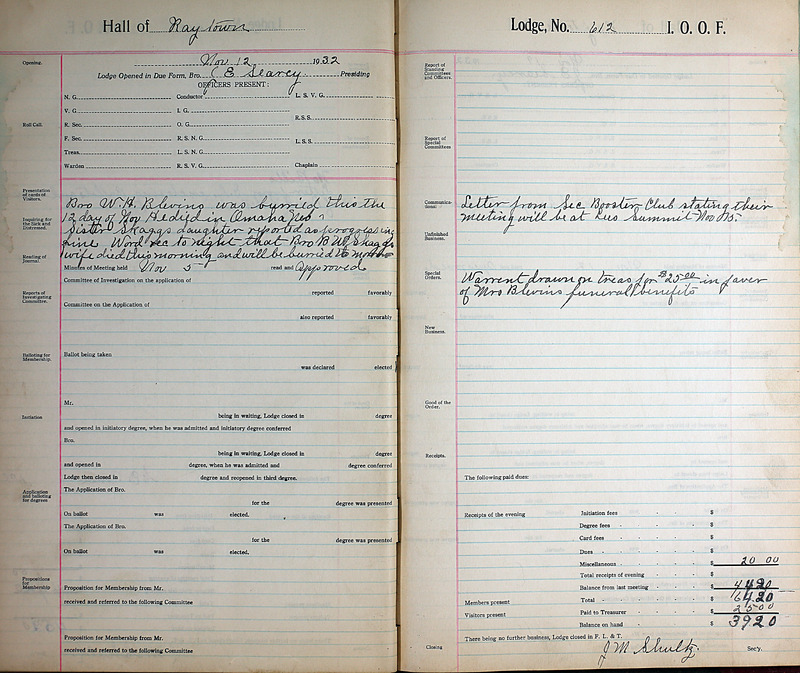 Hall of Raytown
Nov 12 1932
Opening.
Lodge Opened in Due Form, Bro. C E Searcy Presiding
OFFICERS PRESENT:
N. G. Conductor L. S. V. G.
V. G. I. G.
R.S.S.
Roll Call.
R. Sec. O. G.
F. Sec. R. S. N. G.
L.S.S.
Treas. L. S. N. G.
Warden R. S. V. G. Chaplain
Presentation of cards of Visitors.
Bro W.H. Blevins was burried this the
12 day of Nov He died in Omaha Neb
Inquiring for the Sick and Distressed.
Sister Skaggs daughter reported as progressing
fine Word rec to night that Bro B W Skaggs
wife died this morning and will be burried
Reading of Journal.
Minutes of Meeting held Nov 5 read and Approved
Committee of Investigation on the application of
reported favorably
Reports of Investigating Committee.
Committee on the Application of
also reported favorably
Balloting for Membership.
Ballot being taken
was declared elected
Mr.
Initiation
being in waiting, Lodge closed in degree
and opened in initiatory degree, when he was admitted and initiatory degree conferred
Bro.
being in waiting, Lodge closed in degree
and opened in degree, when he was admitted and degree conferred
Lodge then closed in degree and reopened in third degree.
Application and balloting for degrees
The Application of Bro.
for the degree was presented
On ballot was elected.
The Application of Bro.
for the degree was presented
On ballot was elected.
Propositions for Membership
Proposition for Membership from Mr.
received and referred to the following Committee
Proposition for Membership from Mr.
received and referred to the following Committee
Lodge, No. 612 I. O. O. F.
Report of Standing Committees and Officers.
Report of Special Committees
Communications:
Letter from Sec Booster Club stating their
meeting will be at Lees Summit Nov
Unfinished Business.
Special Orders.
Warrent drawn on treas for $25.00 in faver
of Mrs Blevins funeral benefits
New Business.
Good of the Order.
Receipts.
The following paid dues:
Receipts of the evening Initiation fees $
Degree fees $
Card fees $
Dues $
Miscellaneous $ 20 00
Total receipts of evening $
Balance from last meeting $ 4420
Members present Total $ 6420
Visitors present Paid to Treasurer $ 2500
Balance on hand $ 3920
There being no further business, Lodge closed in F. L. & T.
Closing J M Shultz. Sec'y.